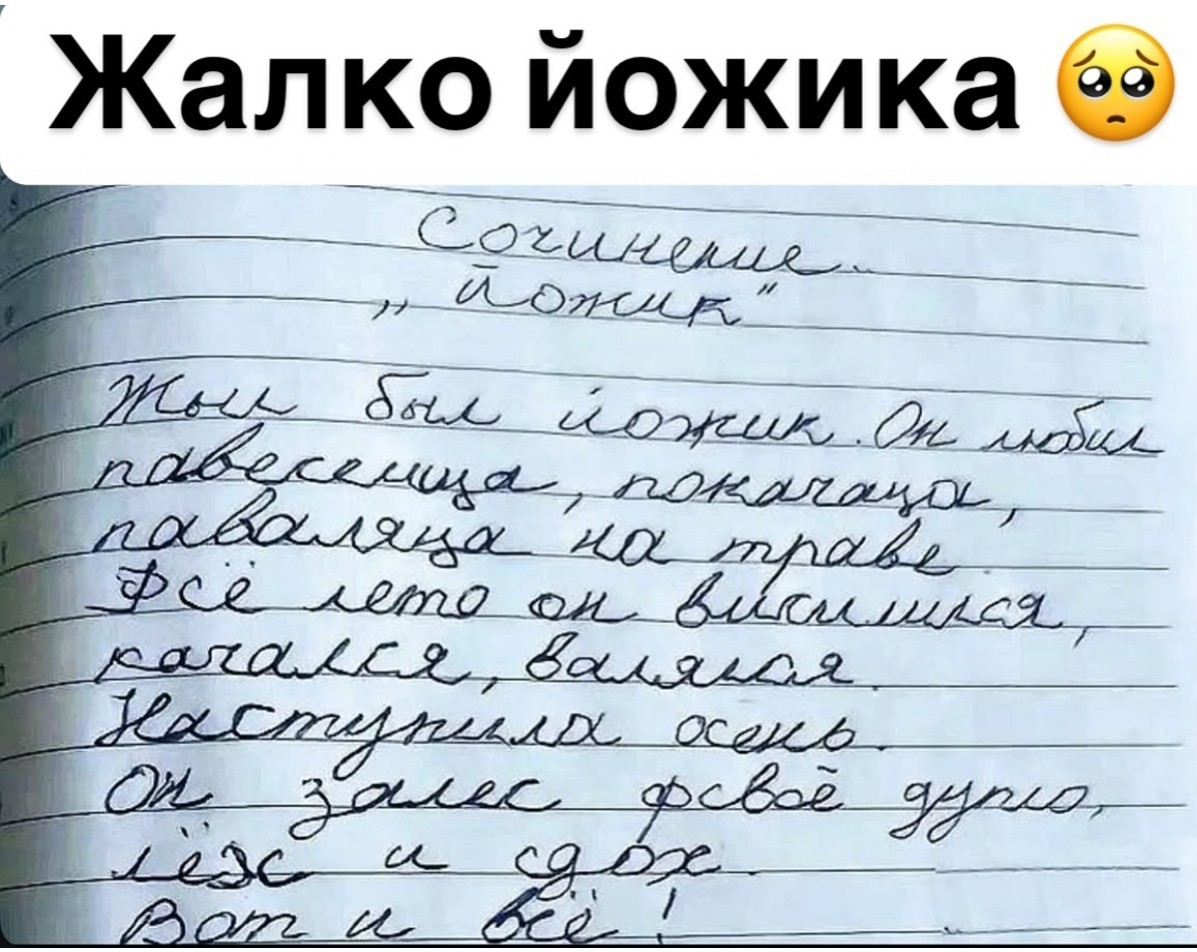 Жалко йожика 🥺
Сочинение.
„Йожик"
Жыл был йожик. Он любил
павеселица, покачаца,
паваляца на траве.
Фсё лето он висилился,
качался, валялся.
Наступила осень.
Он залес фсвоё дупло,
лёзс и сдох.
Вот и всё!